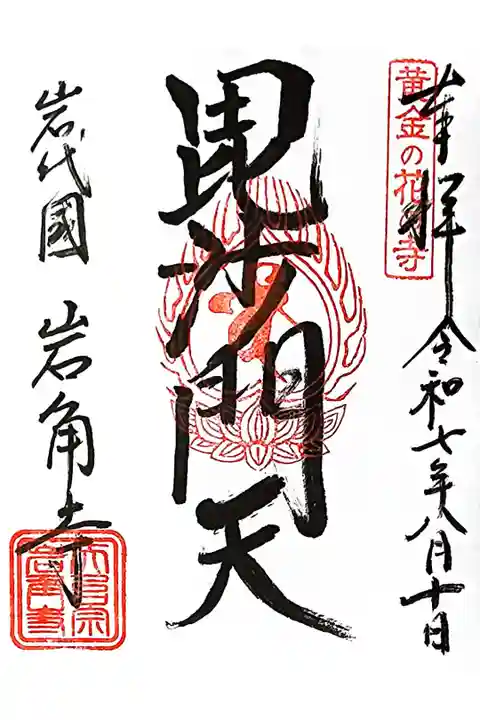 奉拝 令和七年八月十日
黄金の花寺
毘沙門天
岩代國 岩角寺